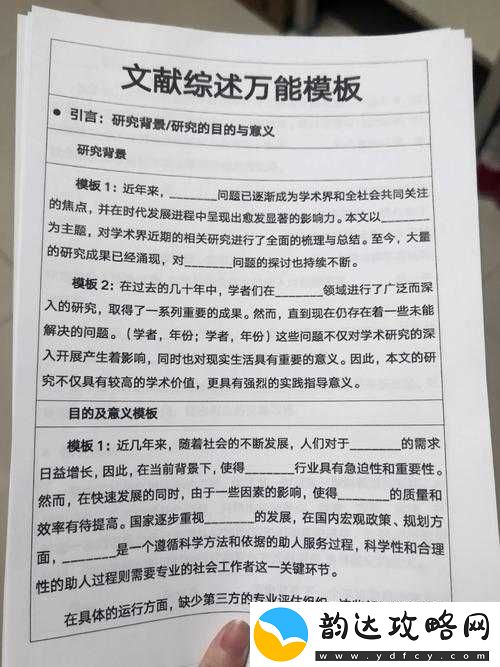 文献综述万能模板
● 引言：研究背景/研究的目的与意义
研究背景
模板 1：近年来，________问题已逐渐成为学术界和全社会共同关注
的焦点，并在时代发展进程中呈现出愈发显著的影响力。本文以________
为主题，对学术界近期的相关研究进行了全面的梳理与总结。至今，大量
的研究成果已经涌现，对________问题的探讨也持续不断。
模板 2：在过去的几十年中，学者们在________领域进行了广泛而深
入的研究，取得了一系列重要的成果。然而，直到现在仍存在着一些未能
解决的问题。（学者，年份；学者，年份）这些问题不仅对学术研究的深
入开展产生着影响，同时也对现实生活具有重要的意义。因此，本文的研
究不仅具有较高的学术价值，更具有强烈的实践指导意义。
目的及意义模板
模板 1：近几年来，随着社会的不断发展，人们对于________的需求
日益增长，因此，在当前背景下，使得________行业具有急迫性和重要性。
然而，在快速发展的同时，由于一些因素的影响，使得________的质量和
效率有待提高。国家逐步重视________的发展，在国内宏观政策、规划方
面，________是一个遵循科学方法和依据的助人服务过程，科学性和合理
性的助人过程则需要专业的社会工作者这一关键环节。
在具体的运行方面，缺少第三方的专业评估组织
韵达攻略网
www.ydfcy.com